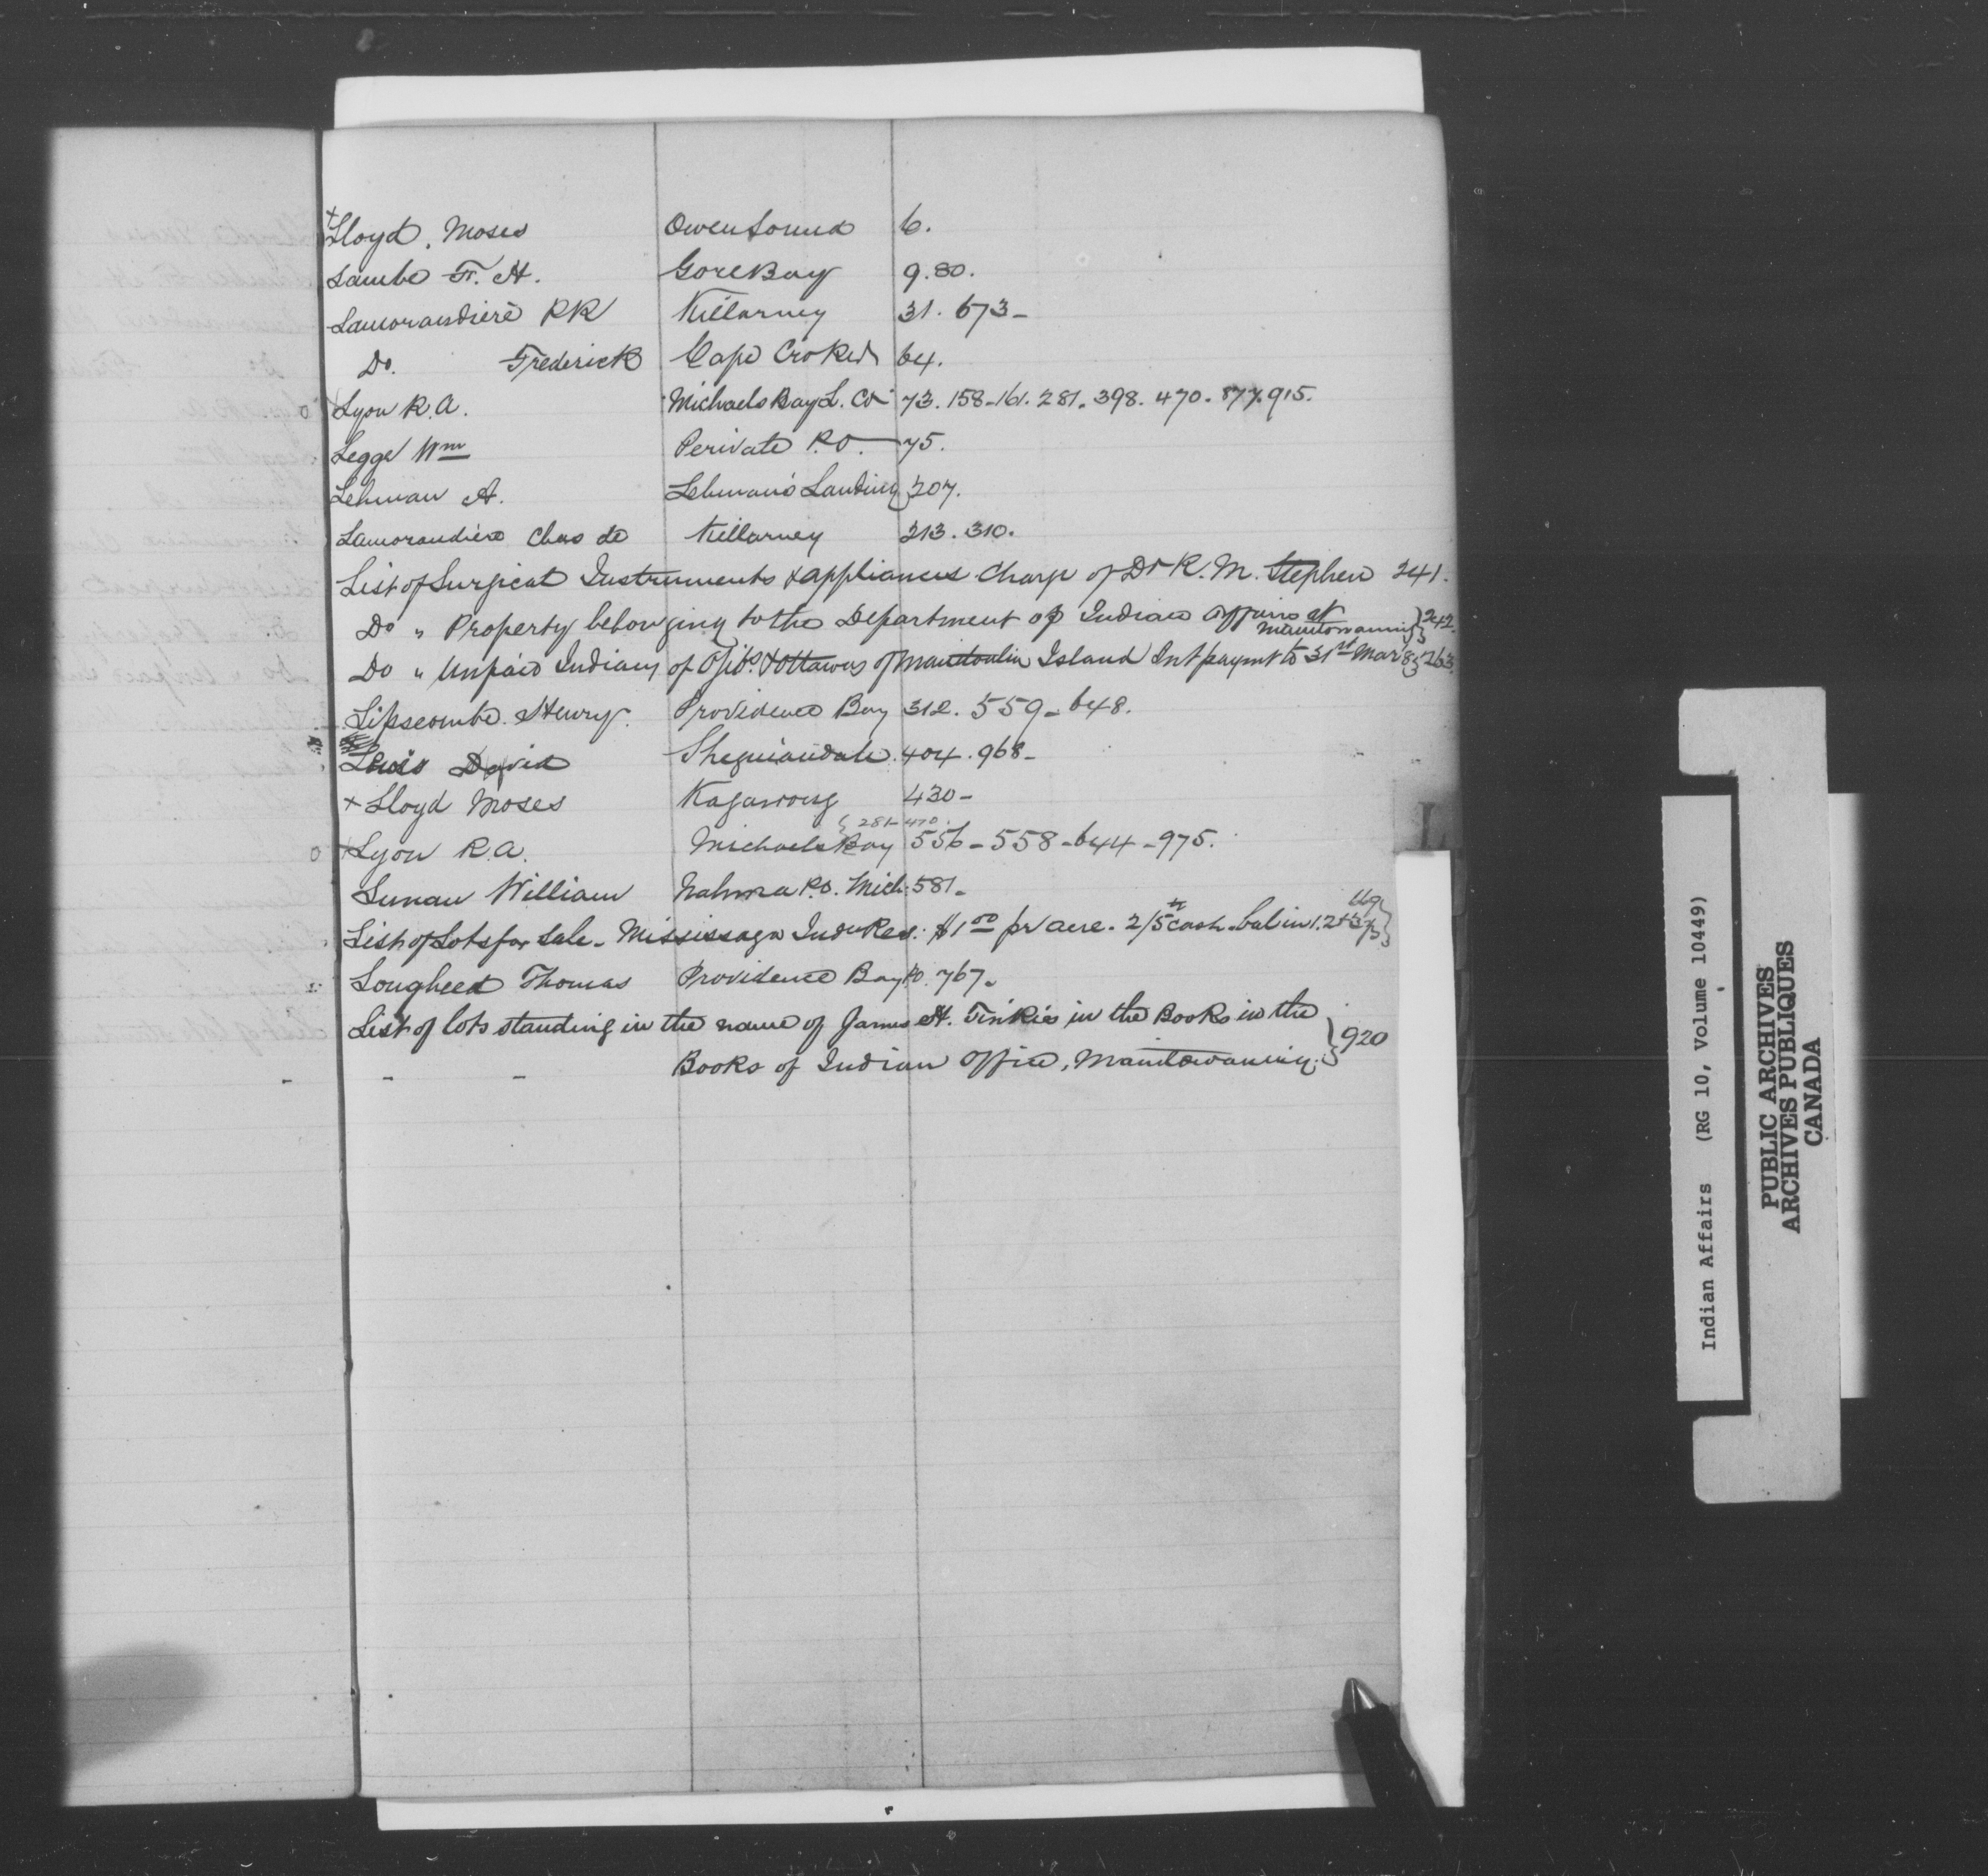 +Lloyd, Moses Owen Sound 6.
Lambe F. H. Gore Bay 9.80.
Lamorandiere RR Killarney 31. 673-
Do. Frederick Cape Croker 64.
o Lyon R.A. Michaels Bay L. Co 73. 158-161. 281. 398. 470. 877. 915.
Legge Wm Perivale P.O. 75.
Lehman A. Lehman's Landing} 207.
Lamorandiere Chas de Killarney 213. 310.
List of Surgical Instruments & appliances charge of Dr R. M. Stephen 241.
Do " Property belonging to the Department of Indian Affairs at Manitowaning} 242.
Do " Unpaid Indians of Ojibs. & Ottawas of Manitoulin Island Int paymt to 31st Mar 8} 263.
Lipscombe. Henry. Providence Bay 312. 559- 648.
Lewis David Sheguiandah. 404. 968-
+ Lloyd Moses Kagawong 430-
{281-470.
o +Lyon R.A. Michaels Bay 556-558-644-975.
Lunau William Nahma P.O. Mich. 581-
List of Lots for Sale- Mississaga Indn Res. $1 00 pr acre. 2/5th cash. bal in 1. 2 & 3 }
Lougheed Thomas Providence Bay P.O. 767.
List of lots standing in the name of James H. Tinkis in the Books in the
Books of Indian Office, Manitowaning.} 920
L
Indian Affairs (RG 10, Volume 10449)
PUBLIC ARCHIVES
ARCHIVES PUBLIQUES
CANADA